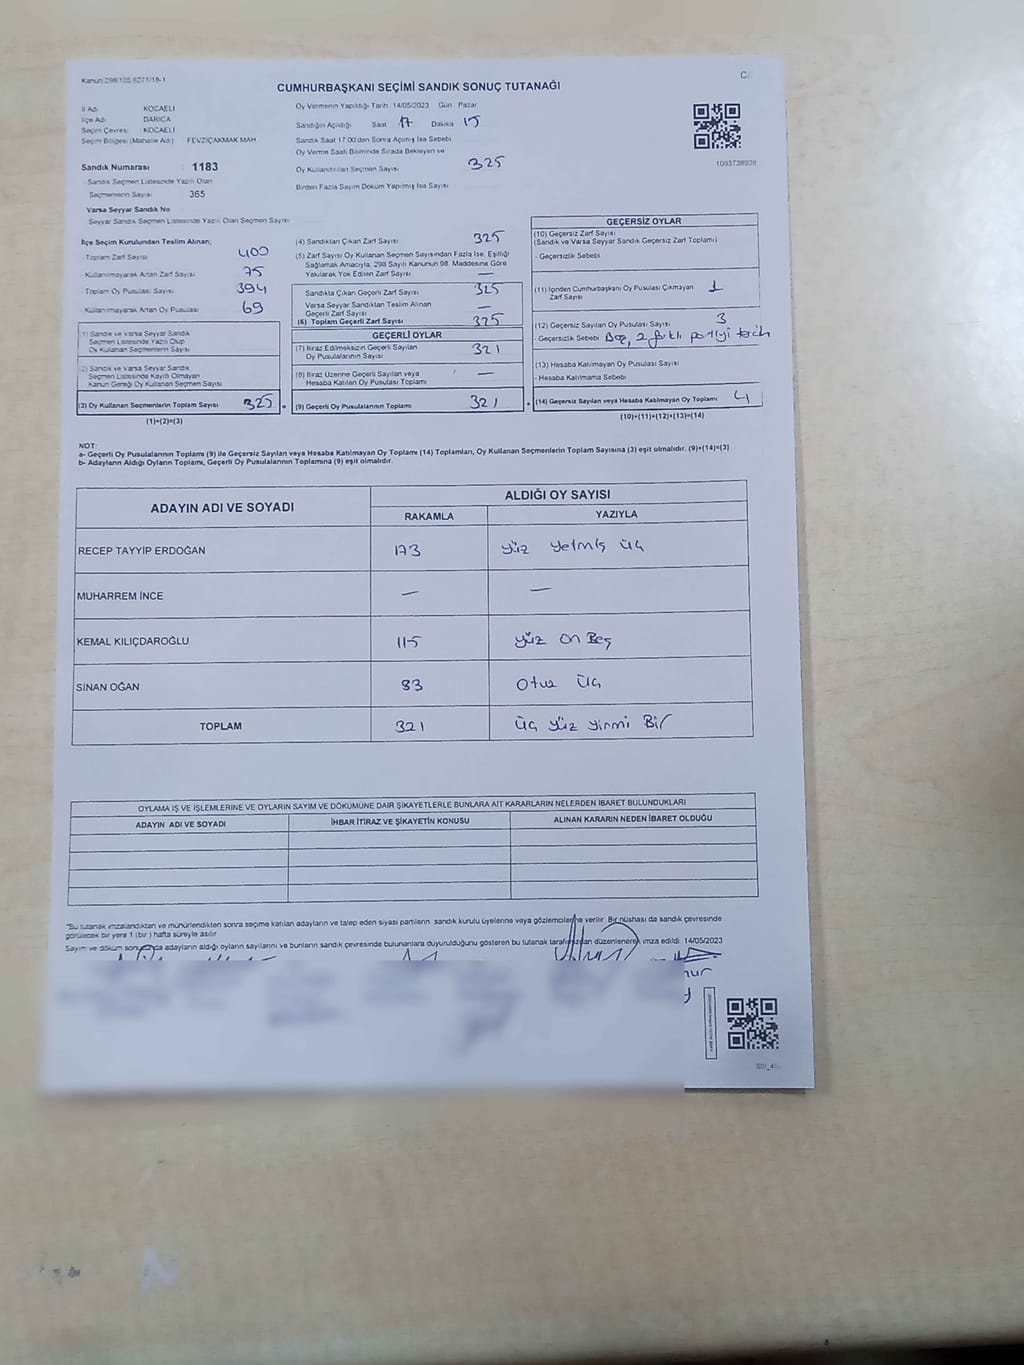 Kanun 298/105 6271/18-1
CUMHURBAŞKANI SEÇİMİ SANDIK SONUÇ TUTANAĞI
İl Adı: KOCAELİ
İlçe Adı: DARICA
Seçim Çevresi: KOCAELİ
Seçim Bölgesi (Mahalle Adı): FEVZİÇAKMAK MAH
Oy Vermenin Yapıldığı Tarih 14/05/2023 Gün Pazar
Sandığın Açıldığı Saat 17 Dakika 15
Sandık Saat 17:00'den Sonra Açılmış İse Sebebi
Oy Verme Saati Bitiminde Sırada Bekleyen ve
Oy Kullandırılan Seçmen Sayısı 325
Birden Fazla Sayım Döküm Yapılmış İse Sayısı
1093738938
Sandık Numarası 1183
Sandık Seçmen Listesinde Yazılı Olan
Seçmenlerin Sayısı 365
Varsa Seyyar Sandık No
Seyyar Sandık Seçmen Listesinde Yazılı Olan Seçmen Sayısı
İlçe Seçim Kurulundan Teslim Alınan;
Toplam Zarf Sayısı 400
Kullanılmayarak Artan Zarf Sayısı 75
Toplam Oy Pusulası Sayısı 394
Kullanılmayarak Artan Oy Pusulası 69
(1) Sandık ve Varsa Seyyar Sandık
Seçmen Listesinde Yazılı Olup
Oy Kullanan Seçmenlerin Sayısı
(2) Sandık ve Varsa Seyyar Sandık
Seçmen Listesinde Kayıtlı Olmayan
Kanun Gereği Oy Kullanan Seçmen Sayısı
(3) Oy Kullanan Seçmenlerin Toplam Sayısı 325
(1)+(2)=(3)
(4) Sandıktan Çıkan Zarf Sayısı 325
(5) Zarf Sayısı Oy Kullanan Seçmen Sayısından Fazla İse, Eşitliği
Sağlamak Amacıyla, 298 Sayılı Kanunun 98. Maddesine Göre
Yakılarak Yok Edilen Zarf Sayısı —
Sandıkta Çıkan Geçerli Zarf Sayısı 325
Varsa Seyyar Sandıktan Teslim Alınan
Geçerli Zarf Sayısı —
(6) Toplam Geçerli Zarf Sayısı 325
GEÇERLİ OYLAR
(7) İtiraz Edilmeksizin Geçerli Sayılan
Oy Pusulalarının Sayısı 321
(8) İtiraz Üzerine Geçerli Sayılan veya
Hesaba Katılan Oy Pusulası Toplamı —
= (9) Geçerli Oy Pusulalarının Toplamı 321
GEÇERSİZ OYLAR
(10) Geçersiz Zarf Sayısı
(Sandık ve Varsa Seyyar Sandık Geçersiz Zarf Toplamı)
- Geçersizlik Sebebi
(11) İçinden Cumhurbaşkanı Oy Pusulası Çıkmayan
Zarf Sayısı 1
(12) Geçersiz Sayılan Oy Pusulası Sayısı 3
- Geçersizlik Sebebi Boş, 2 farklı partiyi tercih
(13) Hesaba Katılmayan Oy Pusulası Sayısı
- Hesaba Katılmama Sebebi
+ (14) Geçersiz Sayılan veya Hesaba Katılmayan Oy Toplamı 4
(10)+(11)+(12)+(13)=(14)
NOT:
a- Geçerli Oy Pusulalarının Toplamı (9) ile Geçersiz Sayılan veya Hesaba Katılmayan Oy Toplamı (14) Toplamları, Oy Kullanan Seçmenlerin Toplam Sayısına (3) eşit olmalıdır. (9)+(14)=(3)
b- Adayların Aldığı Oyların Toplamı, Geçerli Oy Pusulalarının Toplamına (9) eşit olmalıdır.
ADAYIN ADI VE SOYADI
ALDIĞI OY SAYISI
RAKAMLA YAZIYLA
RECEP TAYYİP ERDOĞAN 173 Yüz Yetmiş Üç
MUHARREM İNCE — —
KEMAL KILIÇDAROĞLU 115 Yüz On Beş
SİNAN OĞAN 33 Otuz Üç
TOPLAM 321 Üç Yüz Yirmi Bir
OYLAMA İŞ VE İŞLEMLERİNE VE OYLARIN SAYIM VE DÖKÜMÜNE DAİR ŞİKAYETLERLE BUNLARA AİT KARARLARIN NELERDEN İBARET BULUNDUKLARI
ADAYIN ADI VE SOYADI İHBAR İTİRAZ VE ŞİKAYETİN KONUSU ALINAN KARARIN NEDEN İBARET OLDUĞU
"Bu tutanak imzalandıktan ve mühürlendikten sonra seçime katılan adayların ve talep eden siyasi partilerin sandık kurulu üyelerine veya gözlemcilerine verilir. Bir nüshası da sandık çevresinde
görülecek bir yere 1 (bir) hafta süreyle asılır
Sayım ve döküm sonucunda adayların aldığı oyların sayılarını ve bunların sandık çevresinde bulunanlara duyurulduğunu gösteren bu tutanak tarafımızdan düzenlenerek imza edildi. 14/05/2023